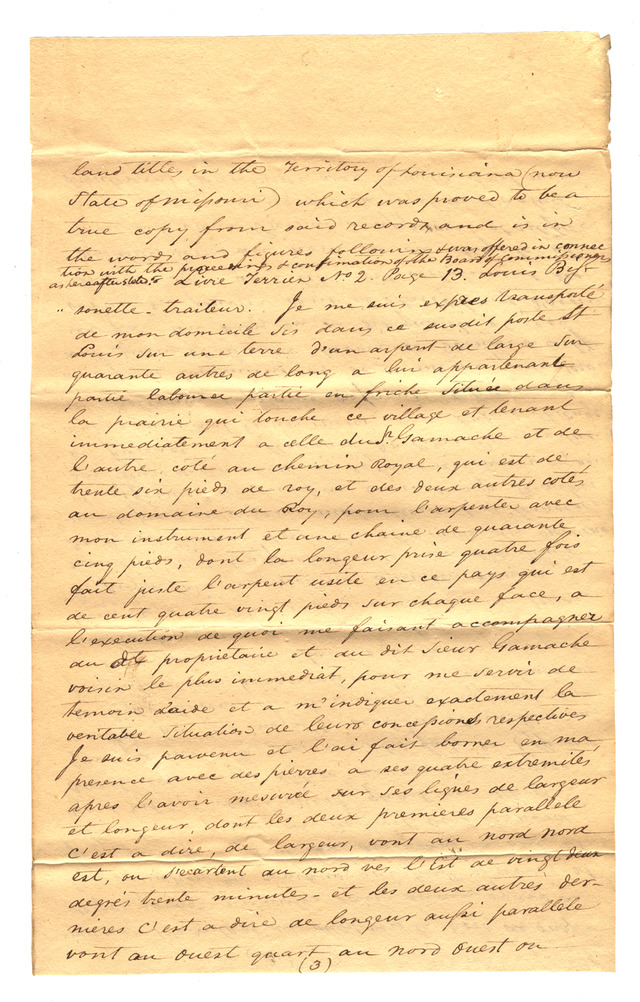 land titles in the Territory of Louisiana (now
State of Missouri) which was proved to be a
true copy from said records, and is in
the words and figures following & was offered in connec
tion with the proceedings & confirmation of the Board of Commissioners
as hereafter Livre Terrien No 2. Page 13. Louis Bis-
" sonette - traiteur. Je me suis exprès transporté
de mon domicile sis dans ce susdit poste St
Louis sur une terre d'un arpent de large sur
quarante autres de long a lui appartenant
partie labourée partie en friche située dans
la prairie qui touche ce village et tenant
immediatement a celle du Sr. Gamache et de
l'autre coté au chemin Royal, qui est de
trente six pieds de roy, et des deux autres cotés
au domaine du Roy, pour l'arpenter avec
mon instrument et une chaine de quarante
cinq pieds, dont la longeur prise quatre fois
fait juste l'arpent usité en ce pays qui est
de cent quatre vingt pieds sur chaque face, a
l'execution de quoi me faisant accompagner
du dt proprietaire et du dit Sieur Gamache
voisin le plus immediat, pour me servir de
temoin d'aide et a m'indiquer exactement la
veritable situation de leurs concessions respectives
Je suis parvenu et l'ai fait borner en ma
presence avec des pierres a ses quatre extremités
apres l'avoir mesurée sur ses lignes de largeur
et longeur, dont les deux premieres parallele
c'est a dire, de largeur, vont au nord nord
est, ou s'ecartent au nord ves l'Est de vingt deux
degrés trente minutes - et les deux autres der-
nières c'est a dire de longeur aussi parallele
vont au ouest quart au nord ouest ou
(3)